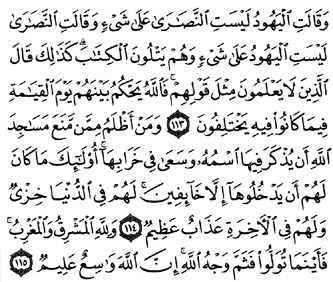 وَقَالَتِ الْيَهُودُ لَيْسَتِ النَّصَارَىٰ عَلَىٰ شَيْءٍ وَقَالَتِ النَّصَارَىٰ
لَيْسَتِ الْيَهُودُ عَلَىٰ شَيْءٍ وَهُمْ يَتْلُونَ الْكِتَابَ ۗ كَذَٰلِكَ قَالَ
الَّذِينَ لَا يَعْلَمُونَ مِثْلَ قَوْلِهِمْ ۚ فَاللَّهُ يَحْكُمُ بَيْنَهُمْ يَوْمَ الْقِيَامَةِ
فِيمَا كَانُوا فِيهِ يَخْتَلِفُونَ ١١٣ وَمَنْ أَظْلَمُ مِمَّنْ مَنَعَ مَسَاجِدَ
اللَّهِ أَنْ يُذْكَرَ فِيهَا اسْمُهُ وَسَعَىٰ فِي خَرَابِهَا ۚ أُولَٰئِكَ مَا كَانَ
لَهُمْ أَنْ يَدْخُلُوهَا إِلَّا خَائِفِينَ ۚ لَهُمْ فِي الدُّنْيَا خِزْيٌ
وَلَهُمْ فِي الْآخِرَةِ عَذَابٌ عَظِيمٌ ١١٤ وَلِلَّهِ الْمَشْرِقُ وَالْمَغْرِبُ ۚ
فَأَيْنَمَا تُوَلُّوا فَثَمَّ وَجْهُ اللَّهِ ۚ إِنَّ اللَّهَ وَاسِعٌ عَلِيمٌ ١١٥